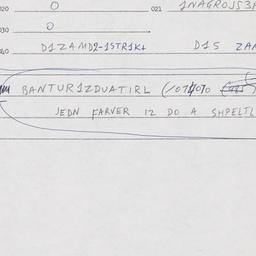 020 0 021 1NAGROJS3A
030 0
040 D1ZAMD2-1STR1K+ D15 ZAN
BANTUR1ZDUATIRL
JEDN FARVER IZ DO A SHPELTL